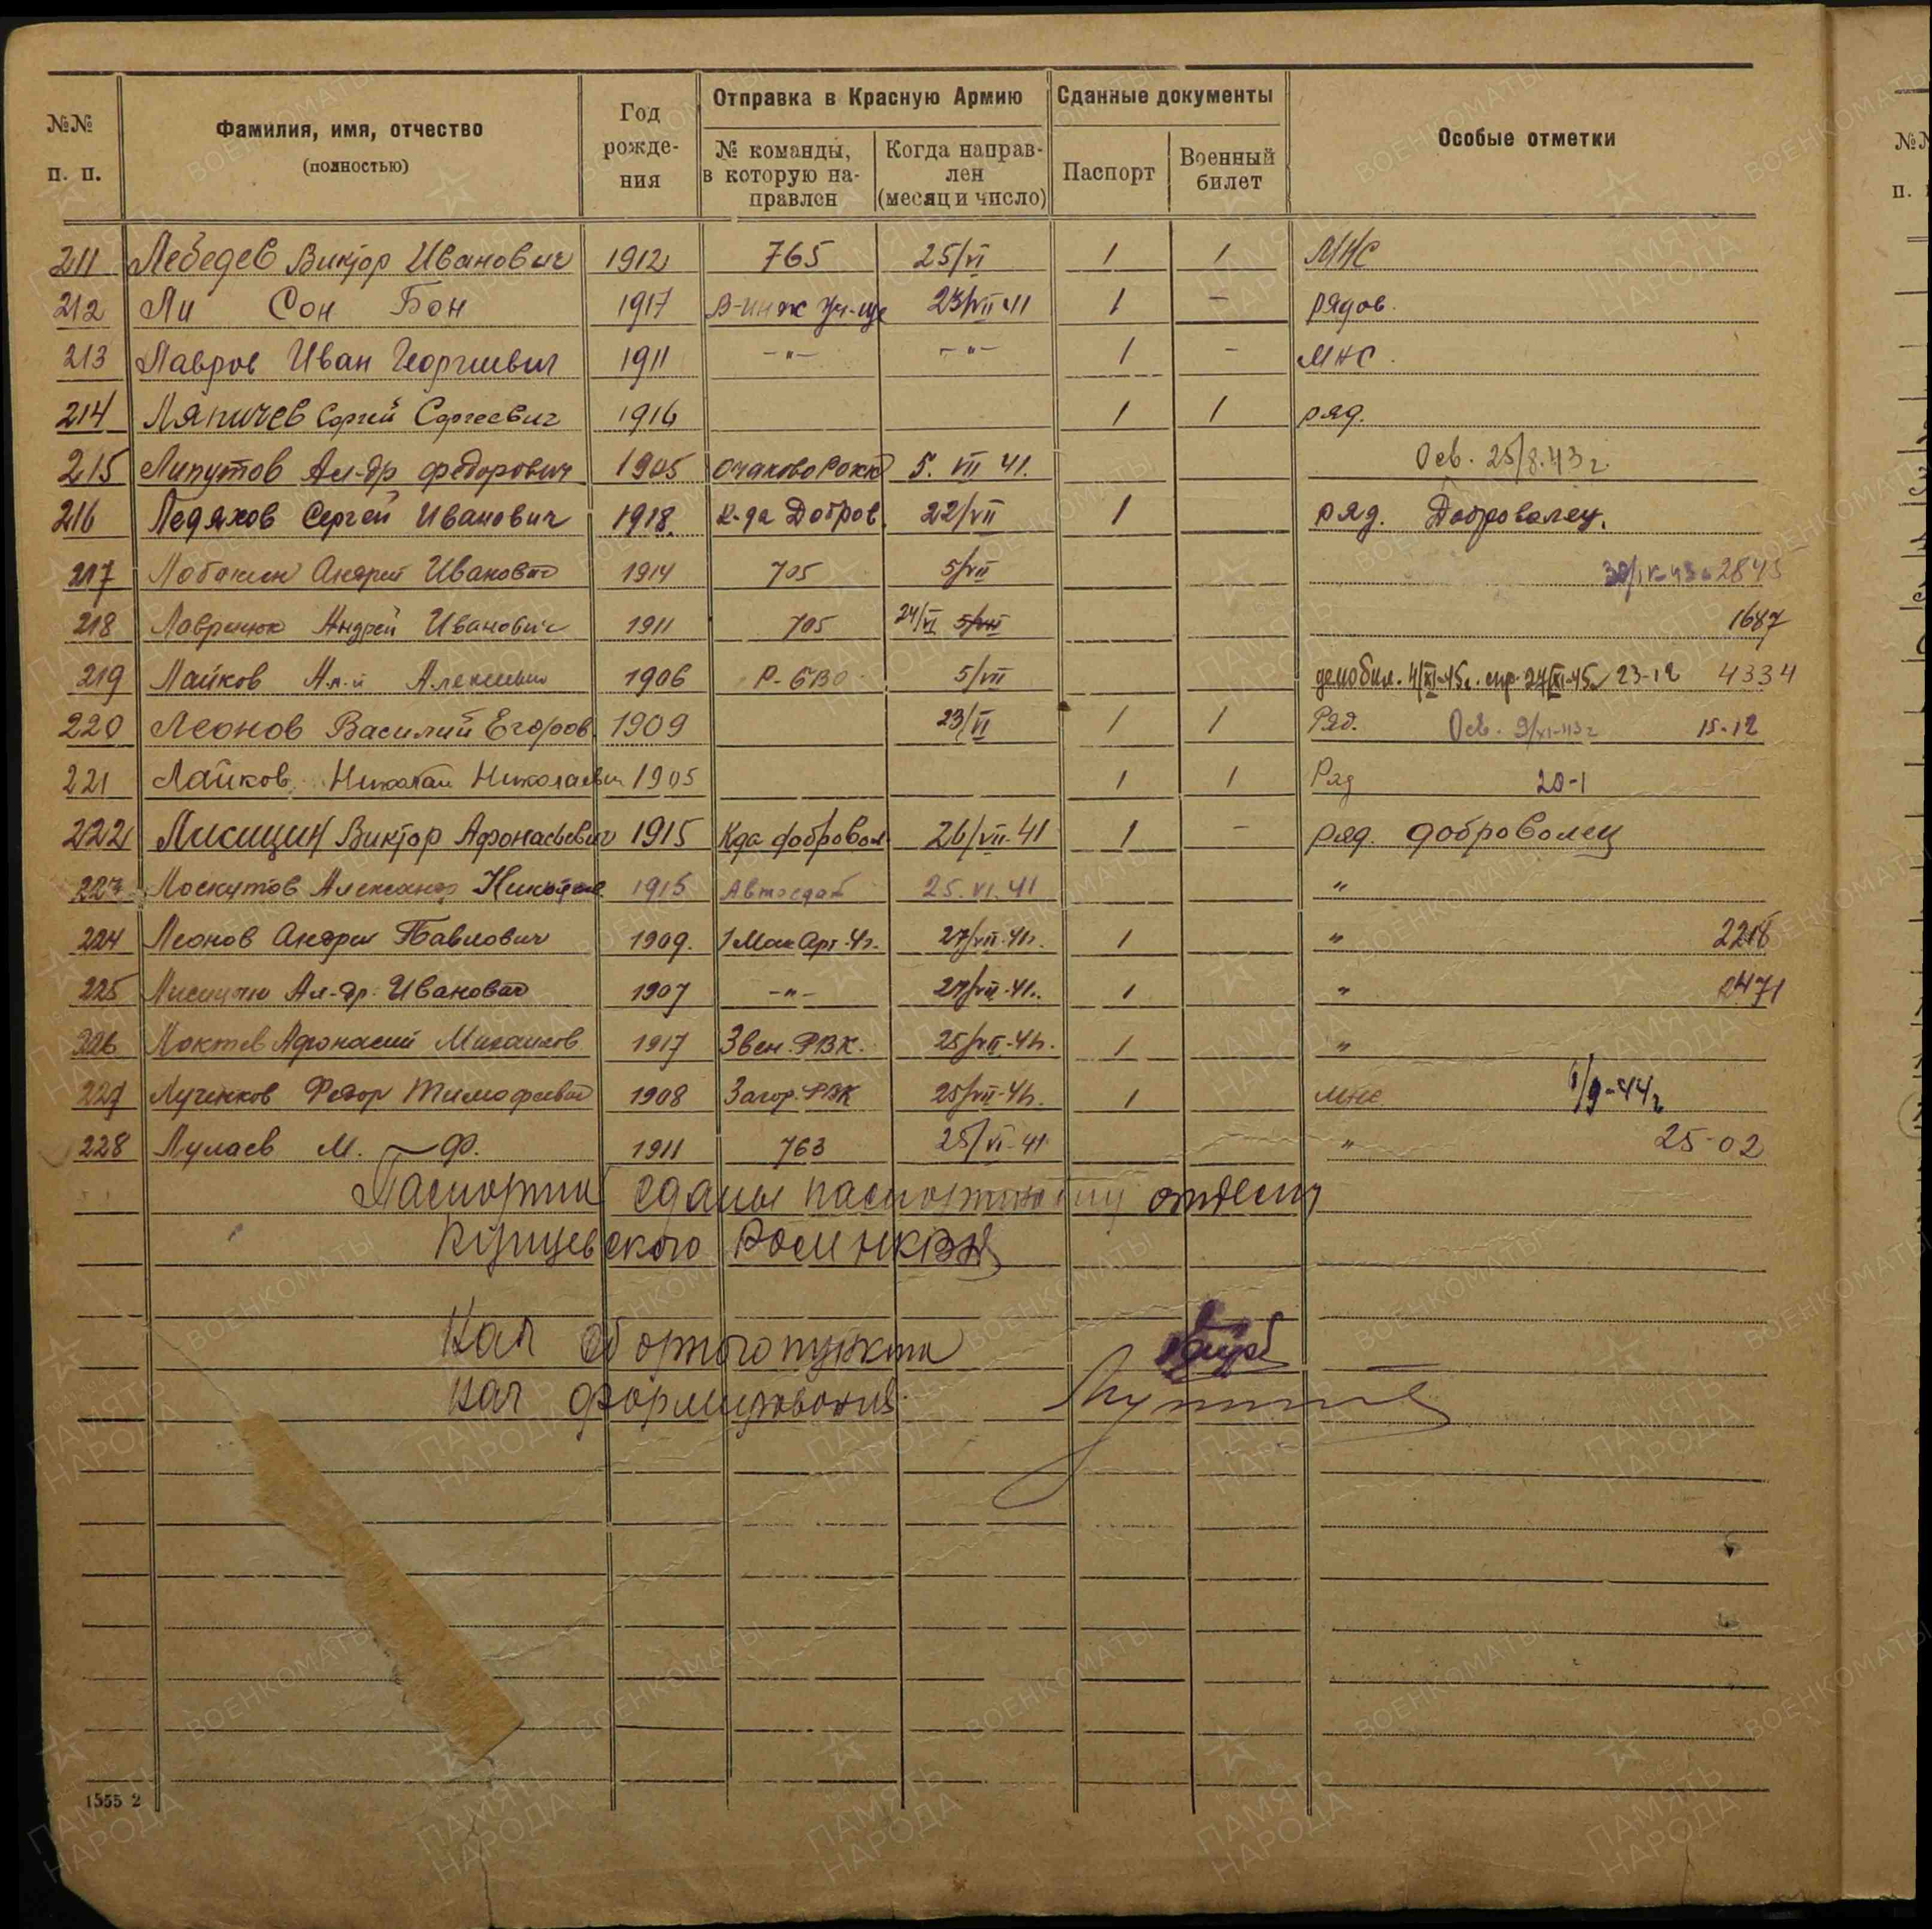 №№ п. п. Фамилия, имя, отчество (полностью) Год рождения Отправка в Красную Армию Сданные документы Особые отметки
№ команды, в которую направлен Когда направлен (месяц и число) Паспорт Военный билет
211 Лебедев Виктор Иванович 1912 765 25/VI 1 1 МНС
212 Ли Сон Бон 1917 В-инж Уч-ще 23/VII 41 1 — рядов.
213 Лавров Иван Георгиевич 1911 —"— —"— 1 — МНС.
214 Ляпичев Сергей Сергеевич 1916 1 1 ряд.
215 Липутов Ал-др Федорович 1905 5. VII 41. Осв. 25/8.43 г.
216 Ледяхов Сергей Иванович 1918. К-да Добров. 22/VII 1 ряд. Доброволец.
217 Андрей Иванович 1914 705 5/VII 2845
218 Андрей Иванович 1911 705 24/VI 5/VII 1687
219 Лайков Ал-й Алексеевич 1906 5/VII демобил. 4/XI-45г. 24/XI-45г 23-12 4334
220 Леонов Василий Егоров. 1909 23/VI 1 1 Ряд. Осв. 9/XI-43г 15-12
221 Лайков Николай Николаевич 1905 1 1 Ряд 20-1
222 Лисицин Виктор Афонасьевич 1915 Кда добровол. 26/VII-41 1 — ряд. доброволец
223 Лоскутов Александр 1915 25.VI.41 "
224 Леонов Андрей Павлович 1909. 27/VII-41г. 1 " 2218
225 Ал-др. Иванович 1907 —"— 27/VII-41г. 1 " 2471
226 Локтев Афонасий Михайлов 1917 Звен. РВК. 25/VII-41г. 1 "
227 Лученков Федор Тимофеевич 1908 Загор. РВК 25/VII-41г. 1 МНС /9-44г
228 Лулаев М. Ф. 1911 763 25/VI-41 " 25-02
Паспорта сданы паспортному отделу
Кунцевского НКВД
Нач сборного пункта
Нач формирования
1555 2
ПАМЯТЬ НАРОДА
ВОЕНКОМАТЫ
№№
п.